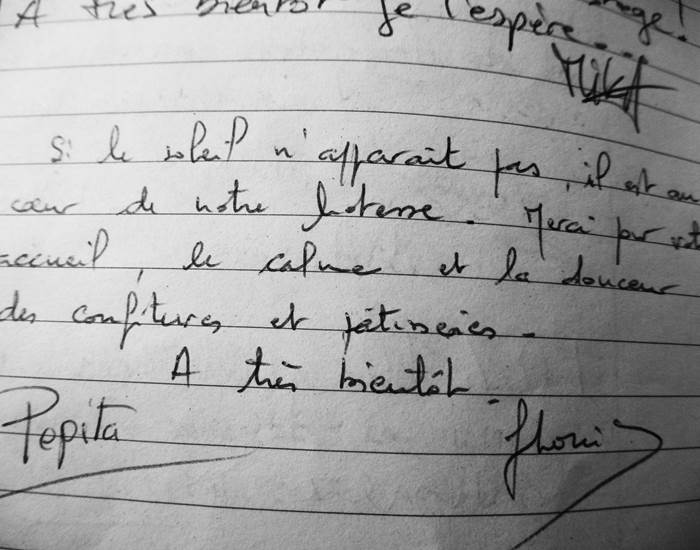 A très bientôt je l'espère...
MIKA
Si le soleil n'apparait pas, il est au
cœur de notre hôtesse. Merci pour vot
accueil, le calme et la douceur
des confitures et pâtisseries.
A très bientôt.
Pepita